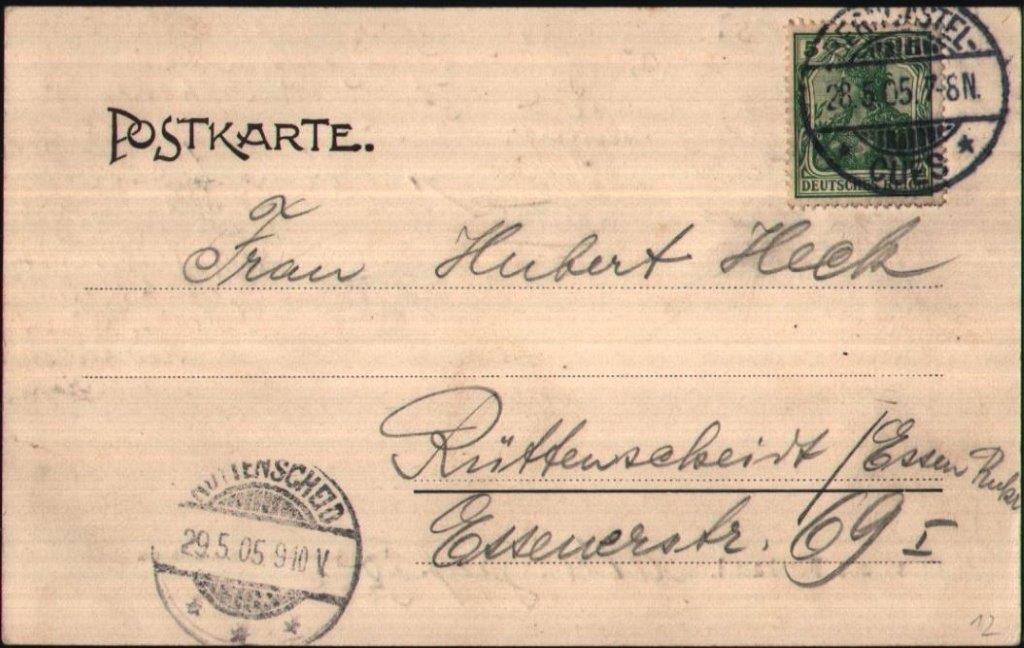 BERNCASTEL.
5 5
28.5.05 7-8N.
CUES
DEUTSCHES REICH
POSTKARTE.
Frau Hubert Heck
Rüttenscheidt / Essen Ruhr
Essenerstr. 69 I
RÜTTENSCHEID
29.5.05 9-10 V
12